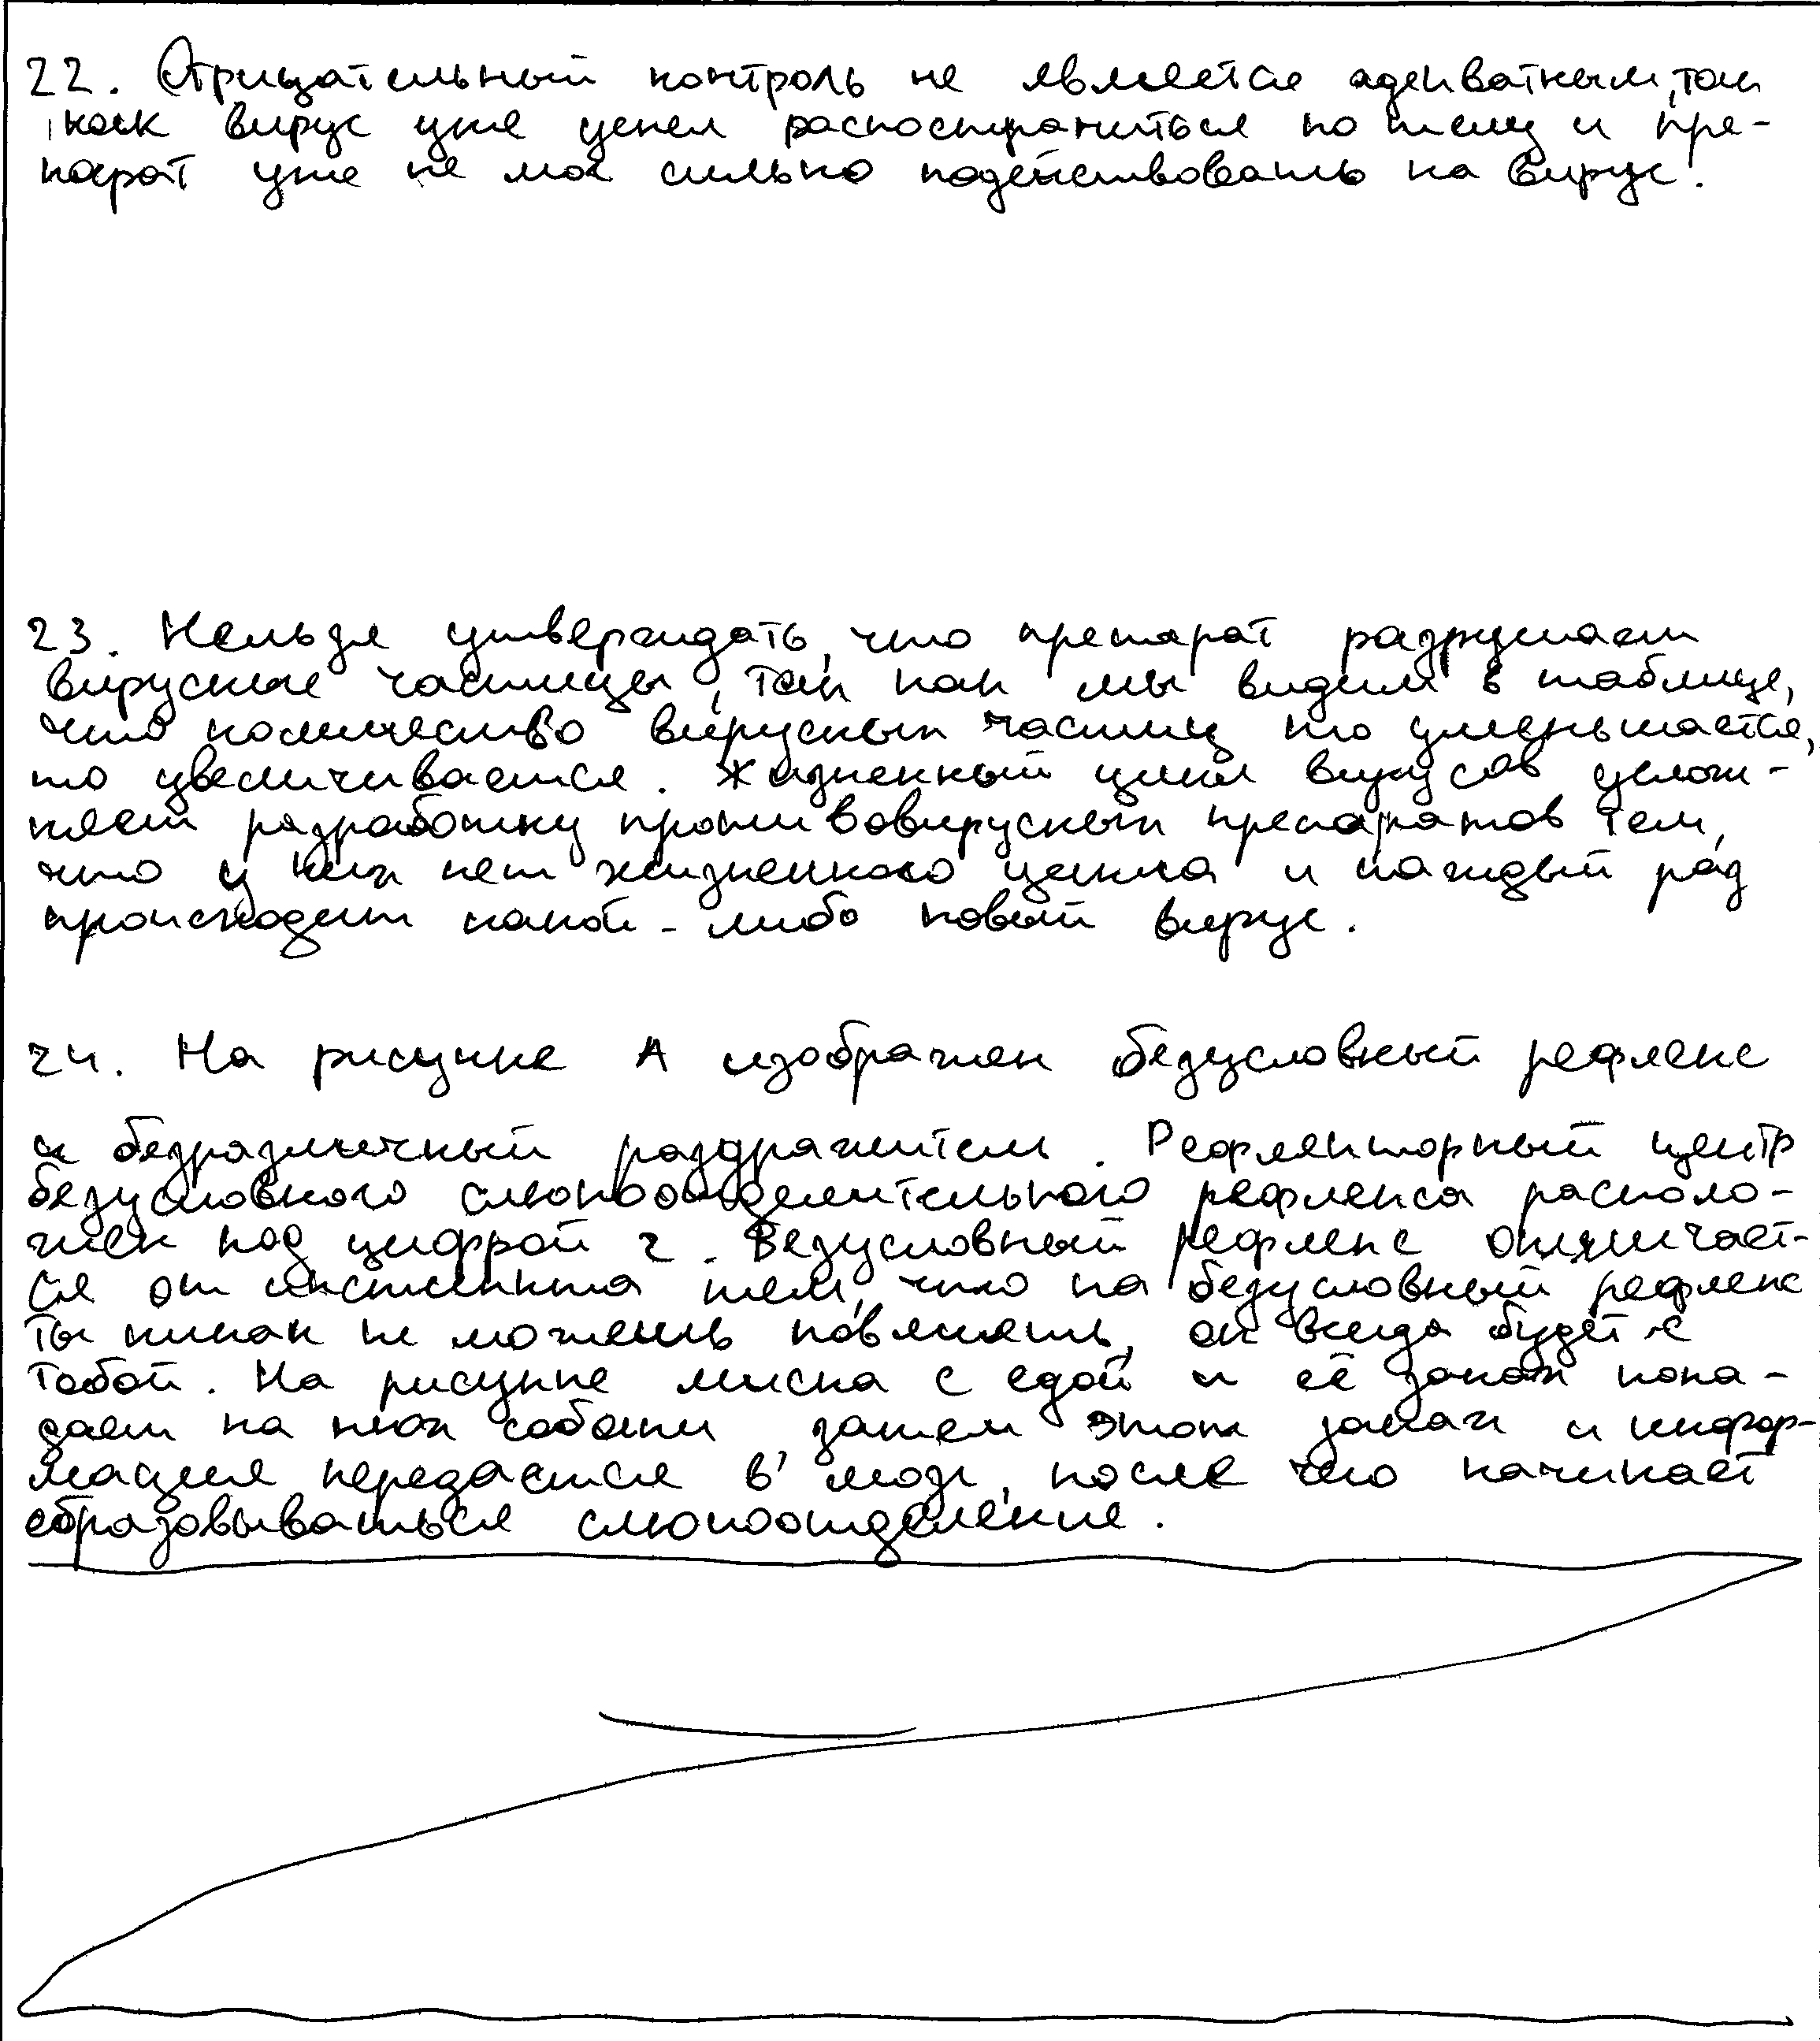 22. Отрицательный контроль не является адекватным, так
как вирус уже успел распостраниться по телу и пре-
парат уже не мог сильно подействовать на вирус.
23. Нельзя утверждать, что препарат разрушает
вирусные частицы, так как мы видим в таблице,
что количество вирусных частиц то уменьшается,
то увеличивается. Жизненный цикл вирусов услож-
няет разработку противовирусных препаратов тем,
что у них нет жизненного цикла и каждый раз
происходит какой-либо новый вирус.
24. На рисунке А изображен безусловный рефлекс
и безразличный раздражитель. Рефлекторный центр
безусловного слюноотделительного рефлекса располо-
жен под цифрой 2. Безусловный рефлекс отличает-
ся от инстинкта тем, что на безусловный рефлекс
ты никак не можешь повлиять, он всегда будет с
тобой. На рисунке миска с едой и её запах попа-
дает на нюх собаки затем этот запах и инфор-
мация передаётся в мозг, после чего начинает
образовываться слюноотделение.